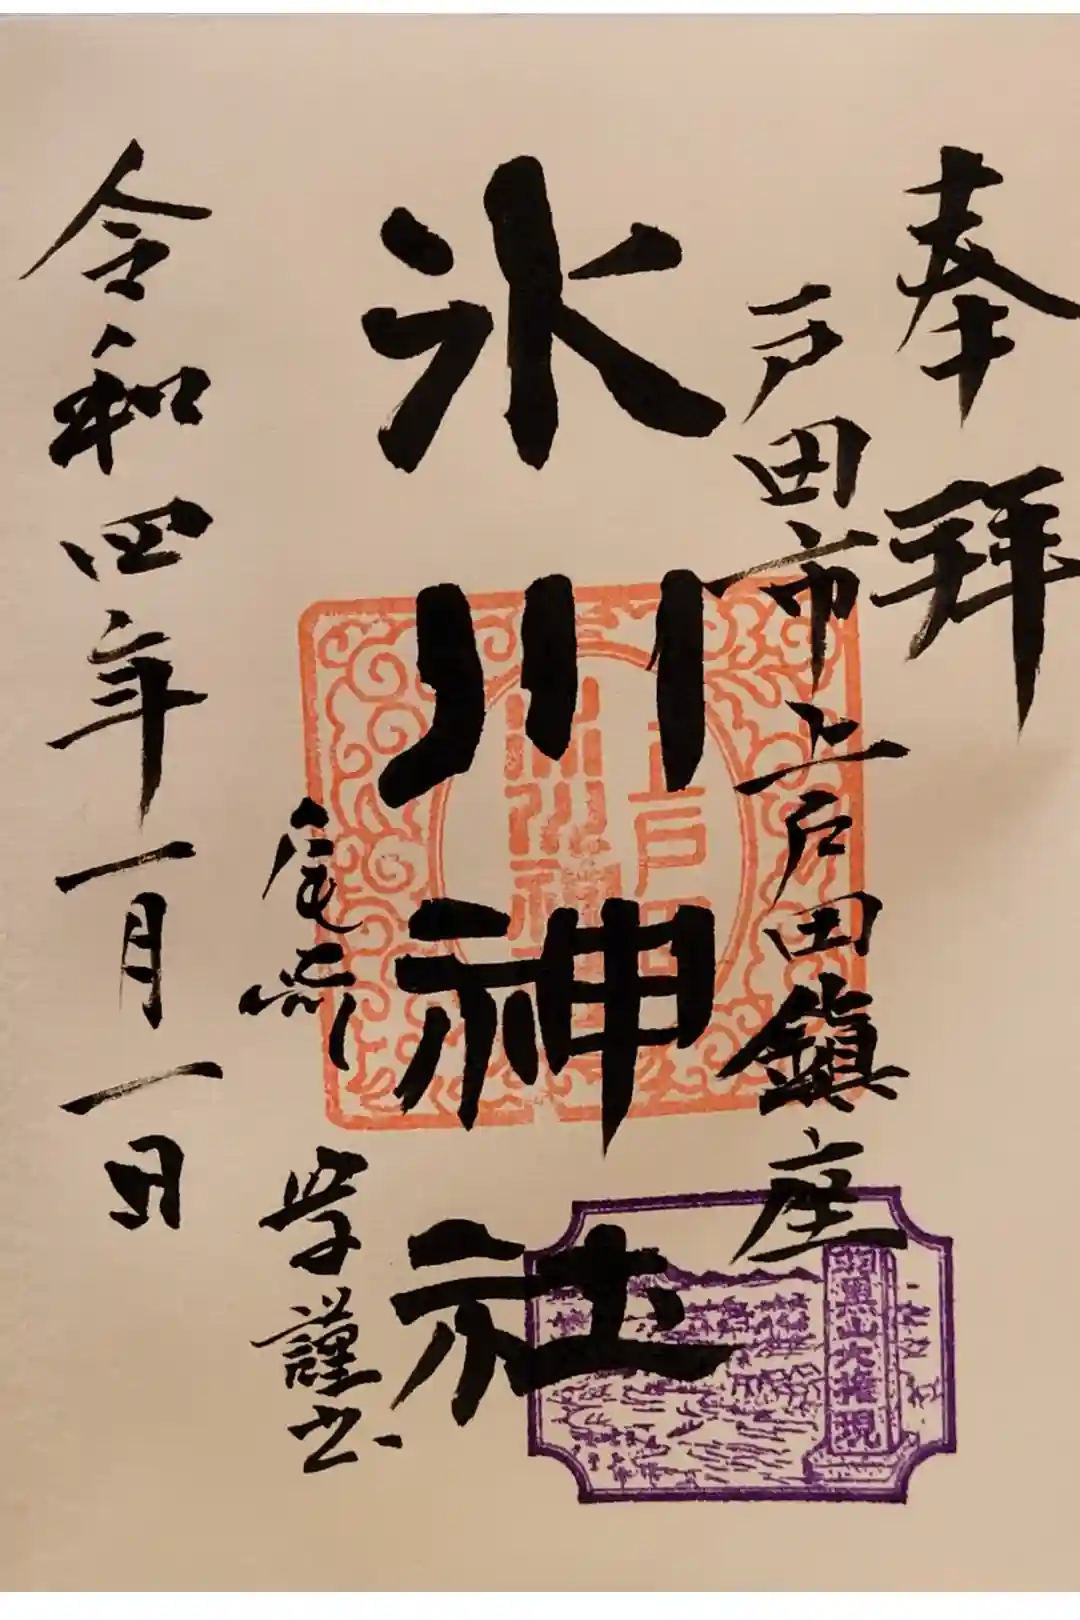 奉拝
戸田市上戸田鎮座
氷川神社
学謹書
令和四年一月一日
上戸田
氷川神
羽黒山大権現